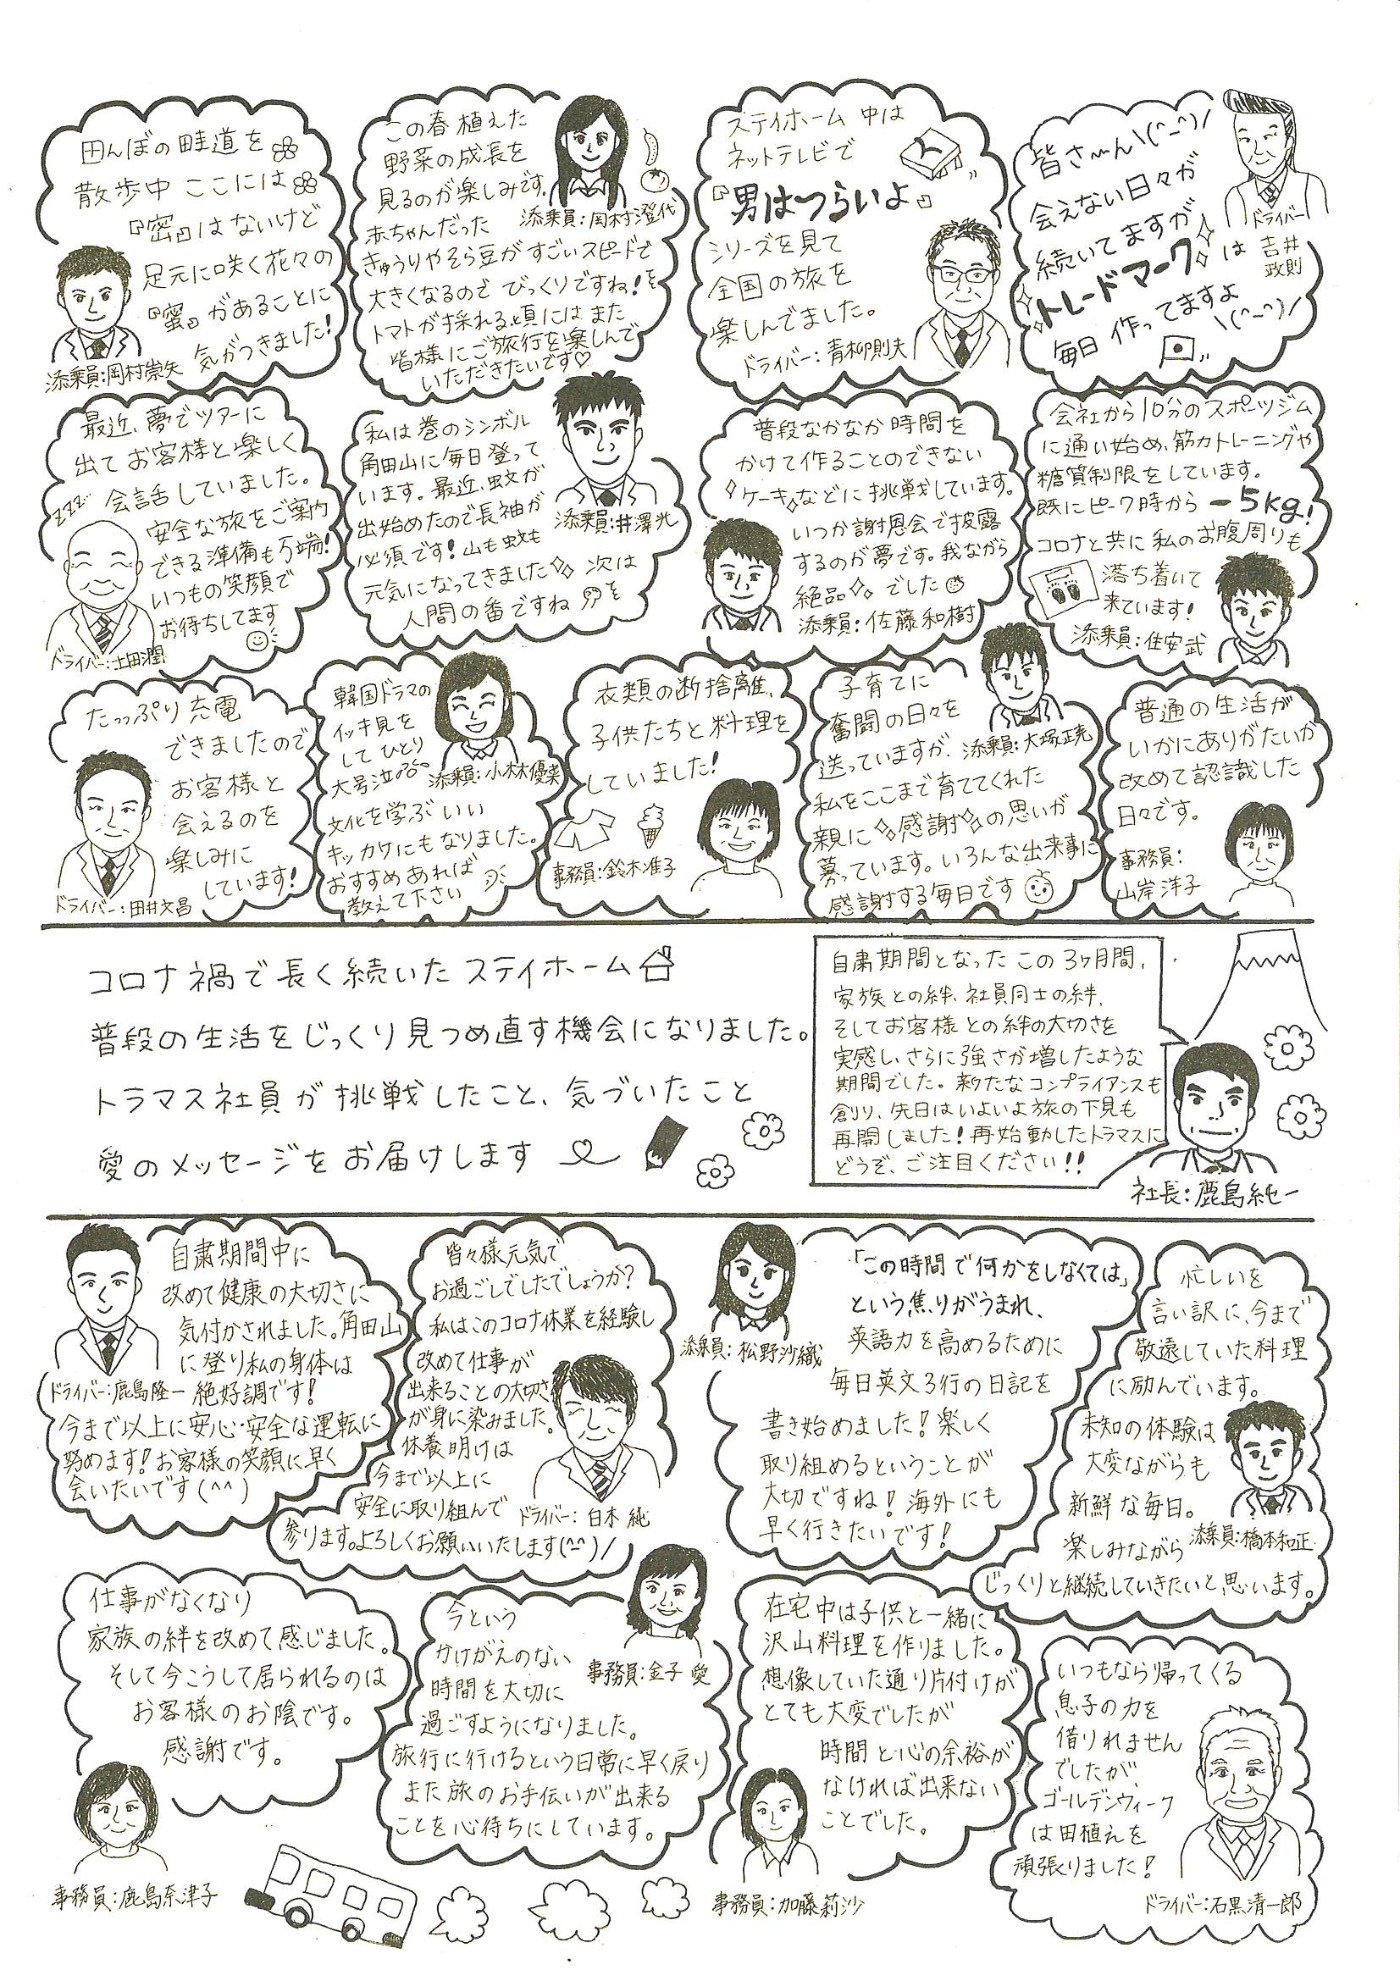 田んぼの畦道を
散歩中 ここには
『密』はないけど
足元に咲く花々の
『蜜』があることに
気がつきました!
添乗員:岡村崇矢
この春植えた
野菜の成長を
見るのが楽しみです。
赤ちゃんだった
きゅうりやそら豆がすごいスピードで
大きくなるので びっくりですね!
トマトが採れる頃にはまた
皆様にご旅行を楽しんで
いただきたいです♡
添乗員:岡村澄代
ステイホーム中は
ネットテレビで
『男はつらいよ』
シリーズを見て
全国の旅を
楽しんでました。
ドライバー:青柳則夫
皆さ〜ん\(^-^)/
会えない日々が
続いてますが
トレードマークは
毎日 作ってますよ
\(^-^)/
ドライバー
吉井
政則
最近、夢でツアーに
出てお客様と楽しく
会話していました。
zzz
安全な旅をご案内
できる準備も万端!
いつもの笑顔で
お待ちしてます
ドライバー:土田潤
私は巻のシンボル
角田山に毎日登って
います。最近、蚊が
出始めたので長袖が
必須です!山も蚊も
元気になってきました 次は
人間の番ですね
添乗員:井澤光
普段なかなか時間を
かけて作ることのできない
ケーキなどに挑戦しています。
いつか謝恩会で披露
するのが夢です。我ながら
絶品 でした
添乗員:佐藤和樹
会社から10分のスポーツジム
に通い始め、筋力トレーニングや
糖質制限をしています。
既にピーク時から -5kg!
コロナと共に私のお腹周りも
落ち着いて
来ています!
添乗員:住安武
たっぷり充電
できましたので
お客様と
会えるのを
楽しみに
しています!
ドライバー:田井文昌
韓国ドラマの
イッキ見を
して ひとり
大号泣
文化を学ぶいい
キッカケにもなりました。
おすすめあれば
教えて下さい
添乗員:小林優実
衣類の断捨離、
子供たちと料理を
していました!
事務員:鈴木准子
子育てに
奮闘の日々を
送っていますが、
私をここまで育ててくれた
親に 感謝 の思いが
募っています。いろんな出来事に
感謝する毎日です
添乗員:大塚正晃
普通の生活が
いかにありがたいか
改めて認識した
日々です。
事務員:
山岸洋子
コロナ禍で長く続いたステイホーム
普段の生活をじっくり見つめ直す機会になりました。
トラマス社員が挑戦したこと、気づいたこと
愛のメッセージをお届けします
自粛期間となったこの3ヶ月間、
家族との絆、社員同士の絆、
そしてお客様との絆の大切さを
実感し、さらに強さが増したような
期間でした。新たなコンプライアンスも
創り、先日はいよいよ旅の下見も
再開しました!再始動したトラマスに
どうぞ、ご注目ください!!
社長:鹿島純一
自粛期間中に
改めて健康の大切さに
気付かされました。角田山
に登り私の身体は
絶好調です!
今まで以上に安心・安全な運転に
努めます!お客様の笑顔に早く
会いたいです(^^)
ドライバー:鹿島隆一
皆々様元気で
お過ごしでしたでしょうか?
私はこのコロナ休業を経験し
改めて仕事が
出来ることの大切さ
が身に染みました。
休養明けは
今まで以上に
安全に取り組んで
参ります。よろしくお願いいたします(^-^)/
ドライバー:白木 純
「この時間で何かをしなくては」
という焦りがうまれ、
英語力を高めるために
毎日英文3行の日記を
書き始めました!楽しく
取り組めるということが
大切ですね!海外にも
早く行きたいです!
添乗員:松野沙織
忙しいを
言い訳に、今まで
敬遠していた料理
に励んでいます。
未知の体験は
大変ながらも
新鮮な毎日。
楽しみながら
じっくりと継続していきたいと思います。
添乗員:橋本和正
仕事がなくなり
家族の絆を改めて感じました。
そして今こうして居られるのは
お客様のお陰です。
感謝です。
事務員:鹿島奈津子
今という
かけがえのない
時間を大切に
過ごすようになりました。
旅行に行けるという日常に早く戻り
また旅のお手伝いが出来る
ことを心待ちにしています。
事務員:金子 愛
在宅中は子供と一緒に
沢山料理を作りました。
想像していた通り片付けが
とても大変でしたが
時間と心の余裕が
なければ出来ない
ことでした。
事務員:加藤莉沙
いつもなら帰ってくる
息子の力を
借りれません
でしたが、
ゴールデンウィーク
は田植えを
頑張りました!
ドライバー:石黒清一郎